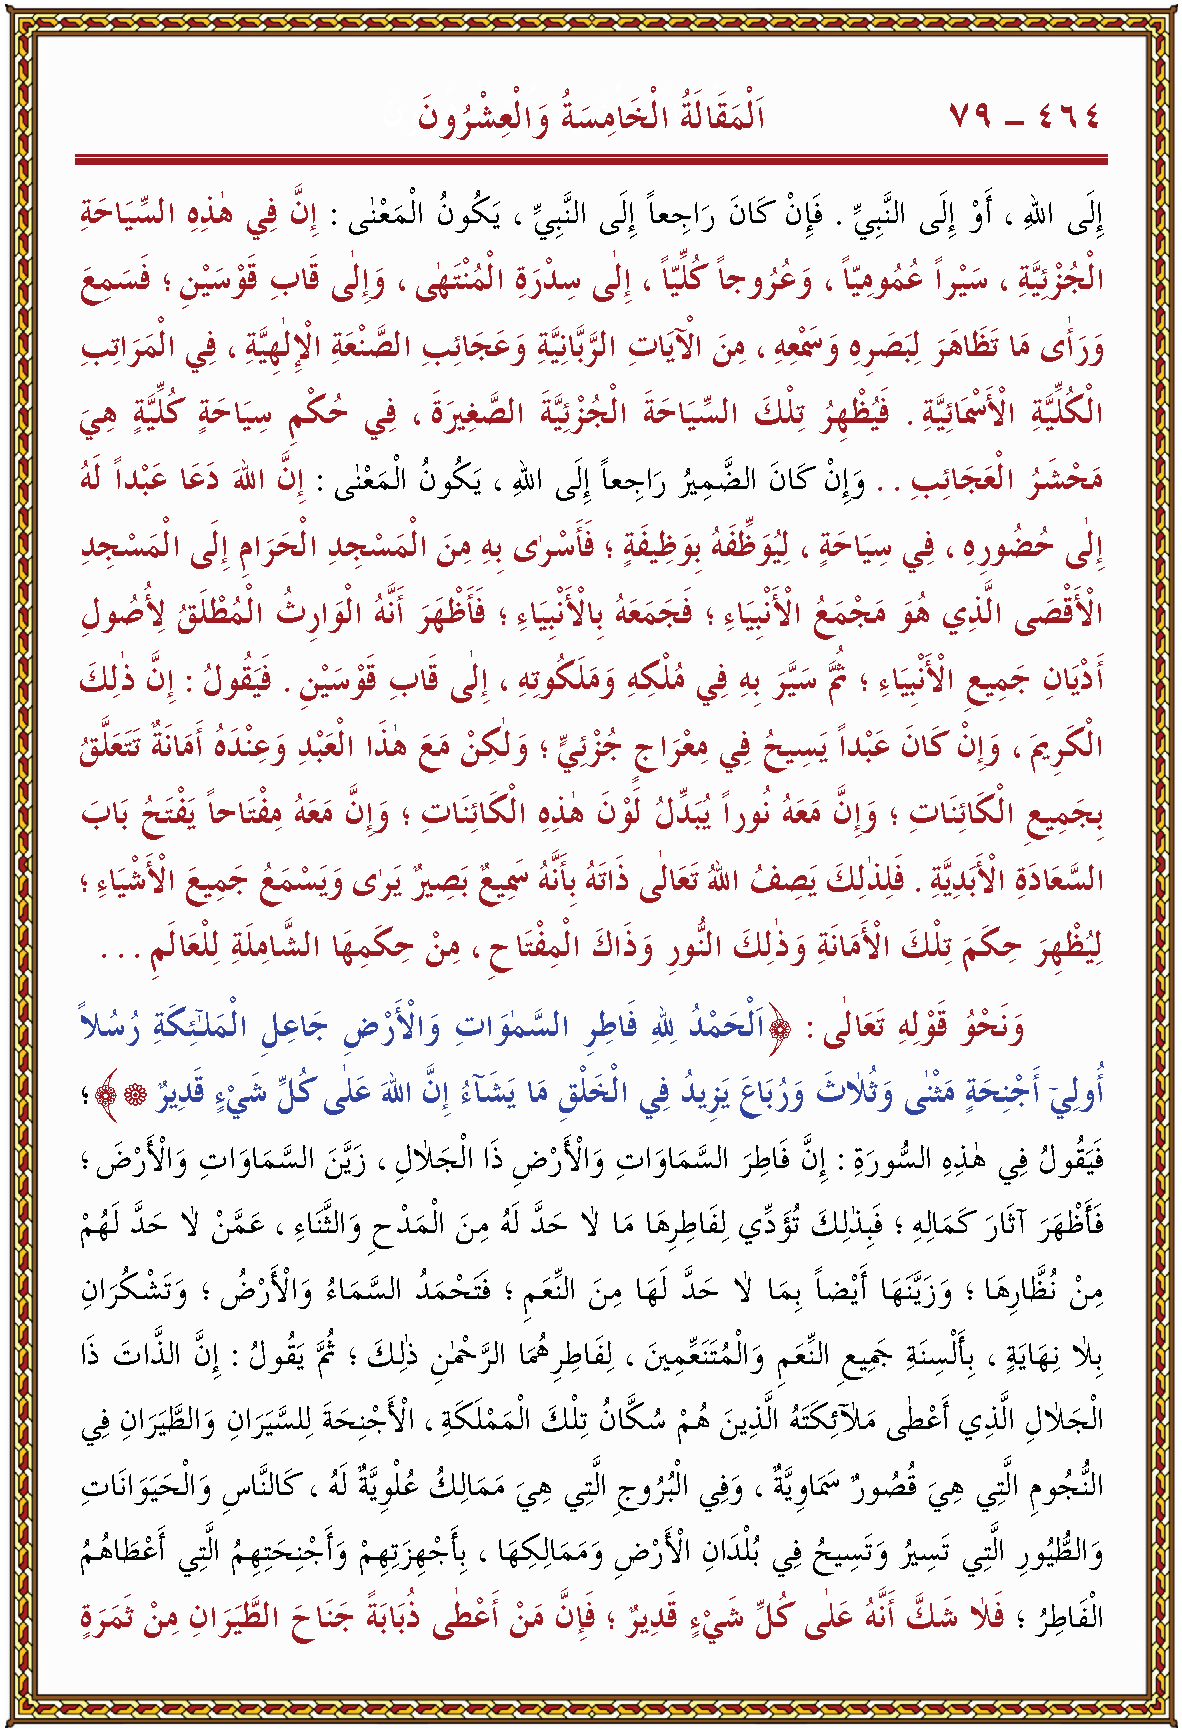 ٤٦٤ – ٧٩ اَلْمَقَالَةُ الْخَامِسَةُ وَالْعِشْرُونَ
إِلَى اللهِ ، أَوْ إِلَى النَّبِيِّ . فَإِنْ كَانَ رَاجِعاً إِلَى النَّبِيِّ ، يَكُونُ الْمَعْنٰى : إِنَّ فِي هٰذِهِ السِّيَاحَةِ
الْجُزْئِيَّةِ ، سَيْراً عُمُومِيّاً ، وَعُرُوجاً كُلِّيّاً ، إِلٰى سِدْرَةِ الْمُنْتَهٰى ، وَإِلٰى قَابِ قَوْسَيْنِ ؛ فَسَمِعَ
وَرَأٰى مَا تَظَاهَرَ لِبَصَرِهِ وَسَمْعِهِ ، مِنَ الْآيَاتِ الرَّبَّانِيَّةِ وَعَجَائِبِ الصَّنْعَةِ الْإِلٰهِيَّةِ ، فِي الْمَرَاتِبِ
الْكُلِّيَّةِ الْأَسْمَائِيَّةِ . فَيُظْهِرُ تِلْكَ السِّيَاحَةَ الْجُزْئِيَّةَ الصَّغِيرَةَ ، فِي حُكْمِ سِيَاحَةٍ كُلِّيَّةٍ هِيَ
مَحْشَرُ الْعَجَائِبِ . . وَإِنْ كَانَ الضَّمِيرُ رَاجِعاً إِلَى اللهِ ، يَكُونُ الْمَعْنٰى : إِنَّ اللهَ دَعَا عَبْداً لَهُ
إِلٰى حُضُورِهِ ، فِي سِيَاحَةٍ ، لِيُوَظِّفَهُ بِوَظِيفَةٍ ؛ فَأَسْرٰى بِهِ مِنَ الْمَسْجِدِ الْحَرَامِ إِلَى الْمَسْجِدِ
الْأَقْصَى الَّذِي هُوَ مَجْمَعُ الْأَنْبِيَاءِ ؛ فَجَمَعَهُ بِالْأَنْبِيَاءِ ؛ فَأَظْهَرَ أَنَّهُ الْوَارِثُ الْمُطْلَقُ لِأُصُولِ
أَدْيَانِ جَمِيعِ الْأَنْبِيَاءِ ؛ ثُمَّ سَيَّرَ بِهِ فِي مُلْكِهِ وَمَلَكُوتِهِ ، إِلٰى قَابِ قَوْسَيْنِ . فَيَقُولُ : إِنَّ ذٰلِكَ
الْكَرِيمَ ، وَإِنْ كَانَ عَبْداً يَسِيحُ فِي مِعْرَاجٍ جُزْئِيٍّ ؛ وَلٰكِنْ مَعَ هٰذَا الْعَبْدِ وَعِنْدَهُ أَمَانَةٌ تَتَعَلَّقُ
بِجَمِيعِ الْكَائِنَاتِ ؛ وَإِنَّ مَعَهُ نُوراً يُبَدِّلُ لَوْنَ هٰذِهِ الْكَائِنَاتِ ؛ وَإِنَّ مَعَهُ مِفْتَاحاً يَفْتَحُ بَابَ
السَّعَادَةِ الْأَبَدِيَّةِ . فَلِذٰلِكَ يَصِفُ اللهُ تَعَالٰى ذَاتَهُ بِأَنَّهُ سَمِيعٌ بَصِيرٌ يَرٰى وَيَسْمَعُ جَمِيعَ الْأَشْيَاءِ ؛
لِيُظْهِرَ حِكَمَ تِلْكَ الْأَمَانَةِ وَذٰلِكَ النُّورِ وَذَاكَ الْمِفْتَاحِ ، مِنْ حِكَمِهَا الشَّامِلَةِ لِلْعَالَمِ . . .
وَنَحْوُ قَوْلِهِ تَعَالٰى : ﴿ اَلْحَمْدُ لِلّٰهِ فَاطِرِ السَّمٰوَاتِ وَالْأَرْضِ جَاعِلِ الْمَلٰٓئِكَةِ رُسُلاً
أُولِيٓ أَجْنِحَةٍ مَثْنٰى وَثُلاٰثَ وَرُبَاعَ يَزِيدُ فِي الْخَلْقِ مَا يَشَآءُ إِنَّ اللهَ عَلٰى كُلِّ شَيْءٍ قَدِيرٌ ۝ ﴾ ؛
فَيَقُولُ فِي هٰذِهِ السُّورَةِ : إِنَّ فَاطِرَ السَّمَاوَاتِ وَالْأَرْضِ ذَا الْجَلاٰلِ ، زَيَّنَ السَّمَاوَاتِ وَالْأَرْضَ ؛
فَأَظْهَرَ آثَارَ كَمَالِهِ ؛ فَبِذٰلِكَ تُؤَدِّي لِفَاطِرِهَا مَا لاٰ حَدَّ لَهُ مِنَ الْمَدْحِ وَالثَّنَاءِ ، عَمَّنْ لاٰ حَدَّ لَهُمْ
مِنْ نُظَّارِهَا ؛ وَزَيَّنَهَا أَيْضاً بِمَا لاٰ حَدَّ لَهَا مِنَ النِّعَمِ ؛ فَتَحْمَدُ السَّمَاءُ وَالْأَرْضُ ؛ وَتَشْكُرَانِ
بِلاٰ نِهَايَةٍ ، بِأَلْسِنَةِ جَمِيعِ النِّعَمِ وَالْمُتَنَعِّمِينَ ، لِفَاطِرِهُمَا الرَّحْمٰنِ ذٰلِكَ ؛ ثُمَّ يَقُولُ : إِنَّ الذَّاتَ ذَا
الْجَلاٰلِ الَّذِي أَعْطٰى مَلاٰئِكَتَهُ الَّذِينَ هُمْ سُكَّانُ تِلْكَ الْمَمْلَكَةِ ، الْأَجْنِحَةَ لِلسَّيَرَانِ وَالطَّيَرَانِ فِي
النُّجُومِ الَّتِي هِيَ قُصُورٌ سَمَاوِيَّةٌ ، وَفِي الْبُرُوجِ الَّتِي هِيَ مَمَالِكُ عُلْوِيَّةٌ لَهُ ، كَالنَّاسِ وَالْحَيَوَانَاتِ
وَالطُّيُورِ الَّتِي تَسِيرُ وَتَسِيحُ فِي بُلْدَانِ الْأَرْضِ وَمَمَالِكِهَا ، بِأَجْهِزَتِهِمْ وَأَجْنِحَتِهِمُ الَّتِي أَعْطَاهُمُ
الْفَاطِرُ ؛ فَلاٰ شَكَّ أَنَّهُ عَلٰى كُلِّ شَيْءٍ قَدِيرٌ ؛ فَإِنَّ مَنْ أَعْطٰى ذُبَابَةً جَنَاحَ الطَّيَرَانِ مِنْ ثَمَرَةٍ